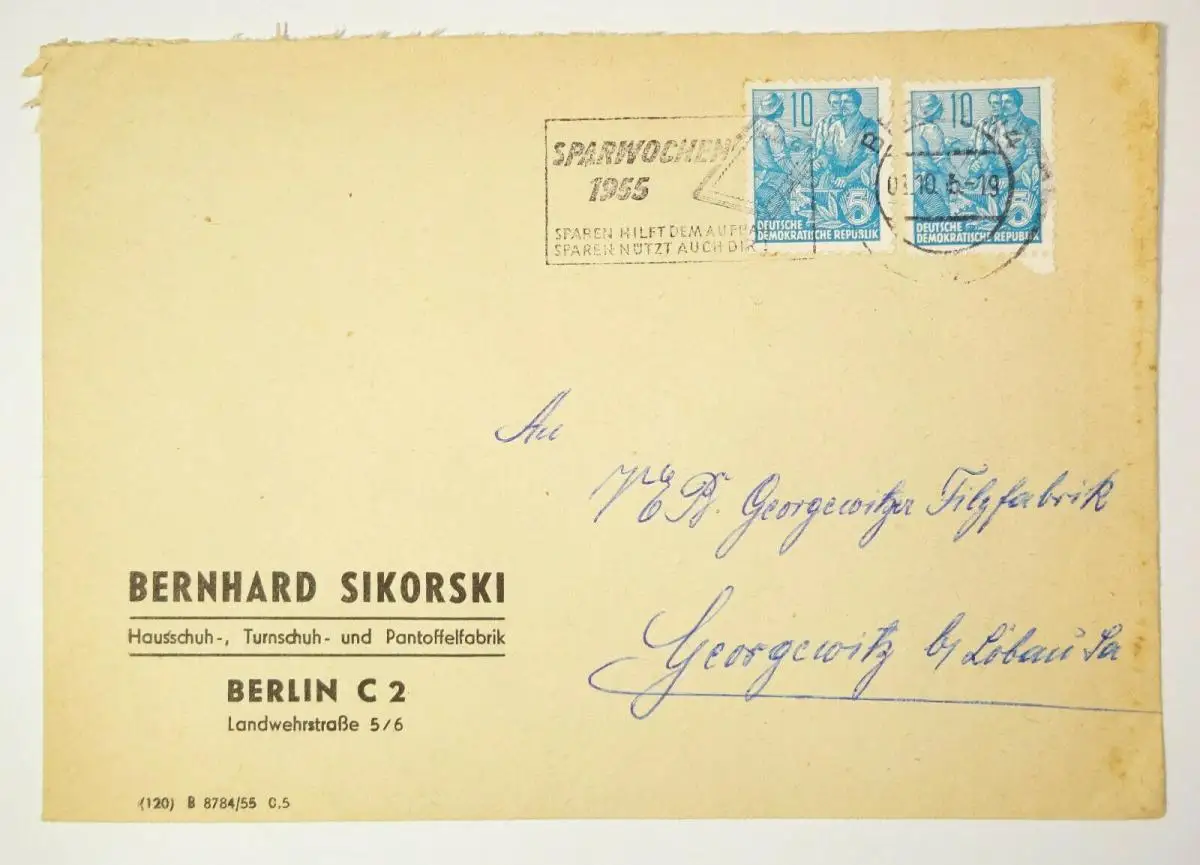 SPARWOCHEN
1955
SPAREN HILFT DEM AUFBA
SPAREN NÜTZT AUCH DIR
10
DEUTSCHE
DEMOKRATISCHE REPUBLIK
5
10
DEUTSCHE
DEMOKRATISCHE REPUBLIK
5
An
VEB. Georgewitzer Filzfabrik
Georgewitz b/ Löbau Sa
BERNHARD SIKORSKI
Hausschuh-, Turnschuh- und Pantoffelfabrik
BERLIN C 2
Landwehrstraße 5/6
(120) B 8784/55 0,5